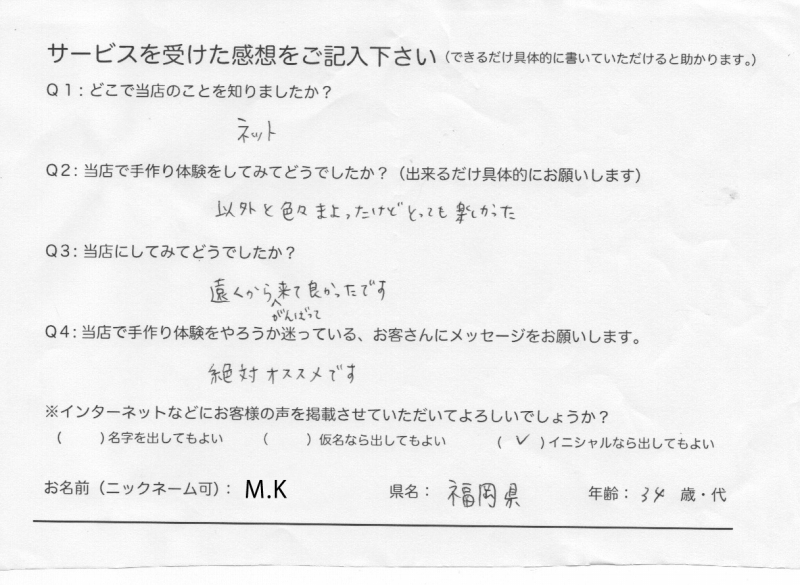 サービスを受けた感想をご記入下さい（できるだけ具体的に書いていただけると助かります。）
Q1：どこで当店のことを知りましたか？
ネット
Q2：当店で手作り体験をしてみてどうでしたか？（出来るだけ具体的にお願いします）
以外と色々まよったけどとっても楽しかった
Q3：当店にしてみてどうでしたか？
遠くから来て良かったです
がんばって
Q4：当店で手作り体験をやろうか迷っている、お客さんにメッセージをお願いします。
絶対オススメです
※インターネットなどにお客様の声を掲載させていただいてよろしいでしょうか？
（　　）名字を出してもよい　（　　）仮名なら出してもよい　（ ✓ ）イニシャルなら出してもよい
お名前（ニックネーム可）： M.K　県名： 福岡県　年齢： 34 歳・代